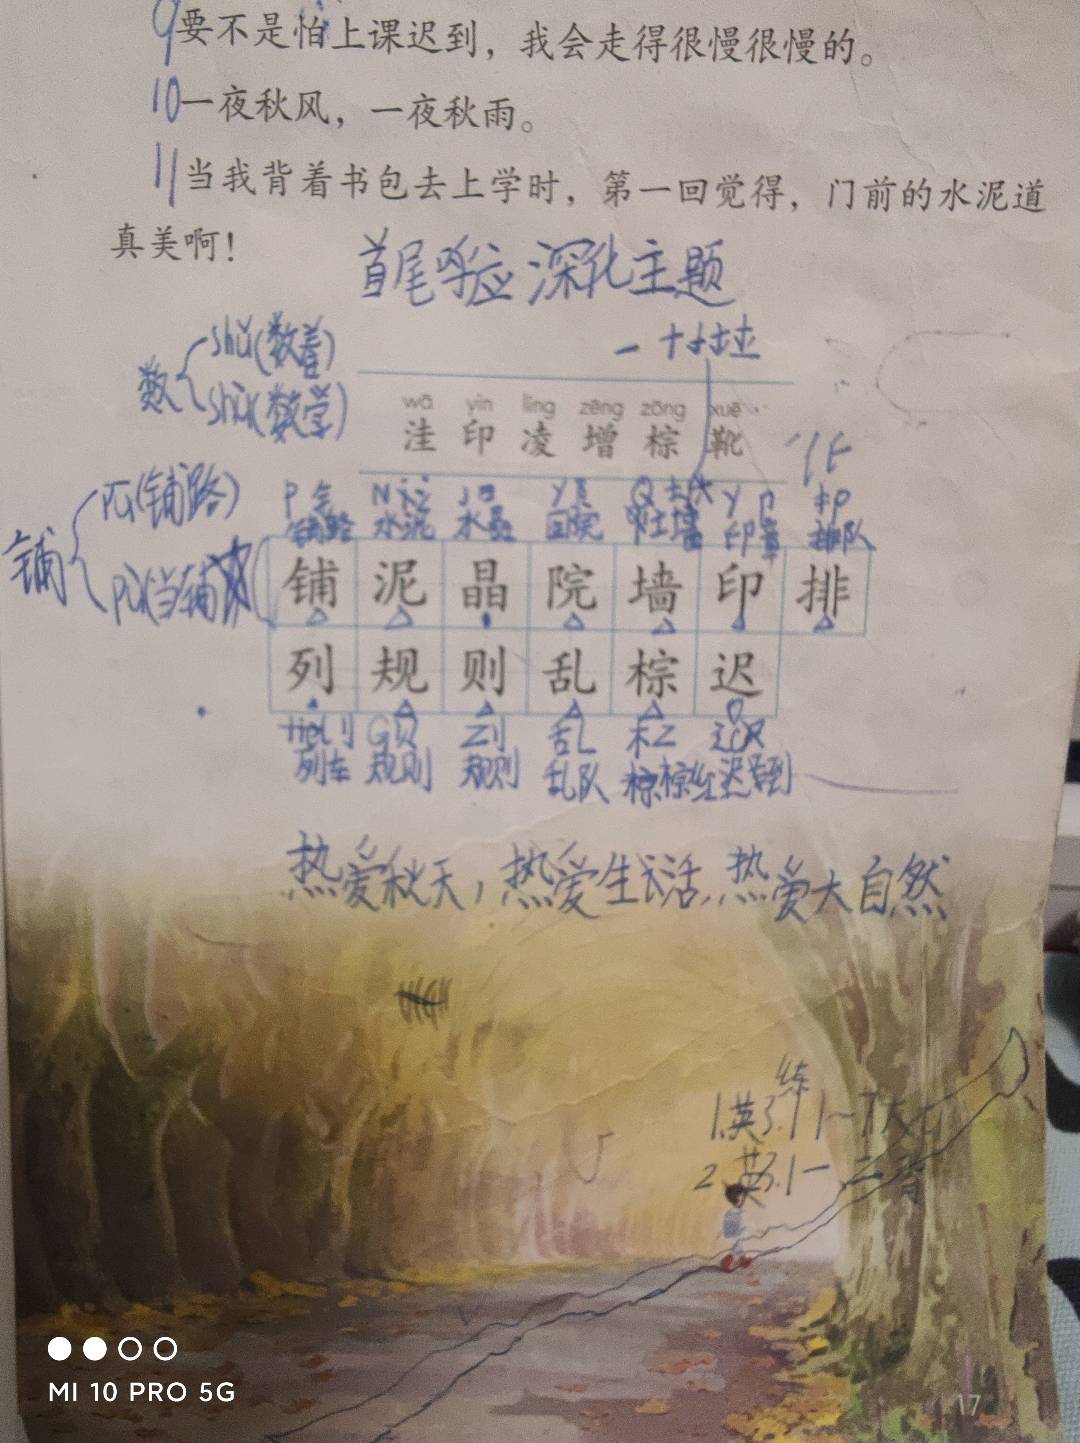 9要不是怕上课迟到，我会走得很慢很慢的。
10一夜秋风，一夜秋雨。
11当我背着书包去上学时，第一回觉得，门前的水泥道
真美啊！
首尾呼应 深化主题
数 shǔ(数着)
shù(数学)
wā yìn líng zēng zōng xuē
洼 印 凌 增 棕 靴
铺 pū(铺路)
铺路 水泥 水晶 印章 排队
铺 泥 晶 院 墙 印 排
列 规 则 乱 棕 迟
列车 规则 规则 乱队 棕红 迟到
热爱秋天，热爱生活，热爱大自然
练
1.英3.1
2.英3.1
17
MI 10 PRO 5G